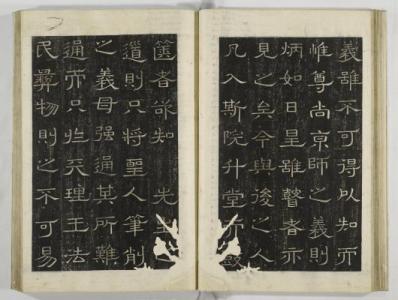 義雖不可得以知而
惟尊尚京師之義則
炳如日星雖瞽者亦
見之矣今與後之人
凡入斯院升堂而鼓
篋者欲知先王
遺則只將聖人筆削
之義毋強通其所難
通而只些天理王法
民彝物則之不可易